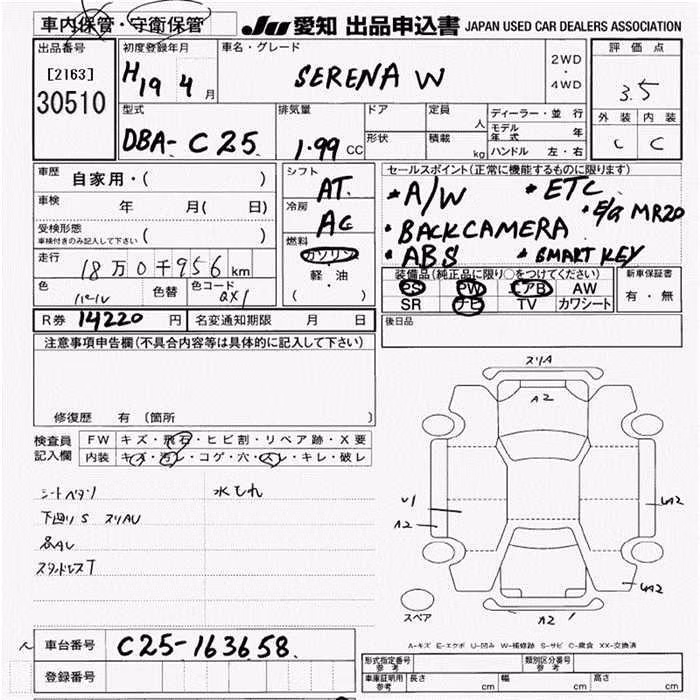 車内保管・守衛保管 JU 愛知 出品申込書 JAPAN USED CAR DEALERS ASSOCIATION
出品番号 初度登録年月 車名・グレード 評価点
[2163] H19 4 月 SERENA W 2WD・4WD 3.5
30510
型式 排気量 ドア 定員 人 ディーラー・並行 外装 内装
DBA- C25 1.99 CC 形状 積載 kg モデル年式 年 C C
ハンドル 左・右
車歴 自家用・( ) シフト AT. セールスポイント(正常に機能するものに限ります)
・A/W ・ETC
車検 年 月( 日) 冷房 AC ・E/G MR20
・BACK CAMERA
受検形態 ( ) 燃料 ・ABS ・SMART KEY
車検付きのみ記入して下さい
走行 18万0千956 km ガソリン 装備品(純正品に限り○をつけてください) 新車保証書
軽・油 PS PW エアB AW 有・無
色 パール 色替 色コード QX1 ( ) SR ナビ TV カワシート
R券 14220 円 名変通知期限 月 日 後日品
注意事項申告欄(不具合内容等は具体的に記入して下さい)
修復歴 有 (箇所 )
検査員 FW キズ・飛石・ヒビ割・リペア跡・X要
記入欄 内装 キズ・汚レ・コゲ・穴・スレ・キレ・破レ
シートヘタリ 水もれ
下廻りS スリAU
各AU
スタッドレスT
スリA
A2
U1
A2
UA2
UA2
A2
スペア
A-キズ E-エクボ U-凹み W-補修跡 S-サビ C-腐食 XX-交換済
車台番号 C25-163658.
登録番号
形式指定番号 参考 類別区分番号 参考
車庫証明用 参考 長さ cm 幅 cm 高さ cm